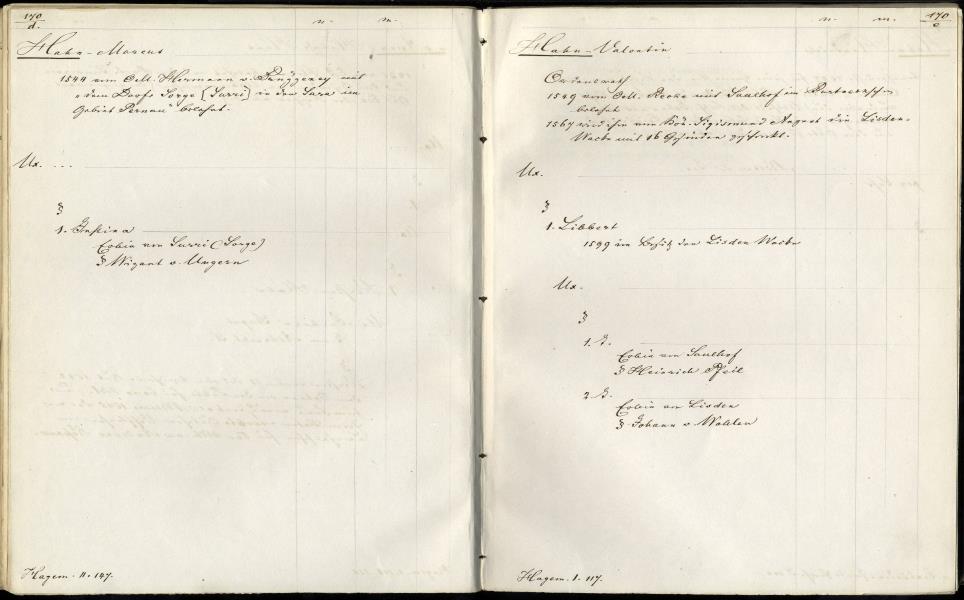 170
d.
n. m.
Hahn - Marcus
1544 vom O.M. Hermann v. Brüggeney mit
„dem Dorfe Sorge [Surri] in der Sara im
Gebiet Pernau“ belehnt.
Ux. ...
§
1. Justina
Erbin von Surri (Sorge)
§ Wigant v. Ungern
Hagem. II. 147.
n. m.
170
e
Hahn - Valentin
Ordensvogt
1549 vom O.M. Recke mit Saulhof im
belehnt
1567 wird ihm vom Kön. Sigismund August die Lisden-
Wacke mit 16 Gesinden geschenkt.
Ux.
§
1. Libbert
1599 im Besitz der Lisden Wacke
Ux.
§
1. J.
Erbin von Saulhof
§ Heinrich Pfeil
2. J.
Erbin von Lisden
§ Johann v. Wahlen
Hagem. I. 117.